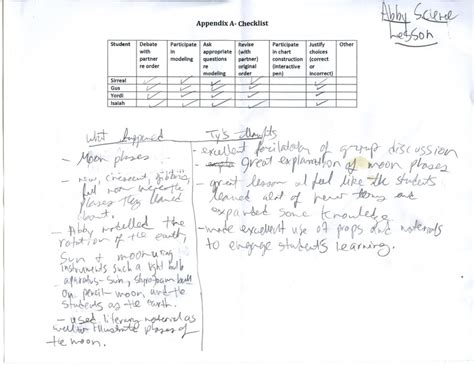 Abby Science
Lesson
Appendix A- Checklist
Student Debate with partner re order Participate in modeling Ask appropriate questions re modeling Revise (with partner) original order Participate in chart construction (interactive pen) Justify choices (correct or incorrect) Other
Sirreal ✓ ✓ ✓ ✓ ✓ ✓
Gus ✓ ✓ ✓ ✓ ✓ ✓
Yordi ✓ ✓ ✓ ✓ ✓ ✓
Isaiah ✓ ✓ ✓ ✓ ✓ ✓
what happened
- Moon phases
- new, crescent, gibbous,
full moon were the
phases they learned
about.
- Abby modelled the
rotation of the earth,
Sun & moon using
instruments such a light bulb
apparatus - sun, styrofoam ball
on pencil - moon and the
students as the earth.
- used literary material as
well to illustrate phases of
the moon.
Ty's thoughts
- excellent facilitation of group discussion
- great explanation of moon phases
- great lesson and feel like the students
learned alot of new and
expanded some knowledge.
- made excellent use of props and materials
to engage students learning.